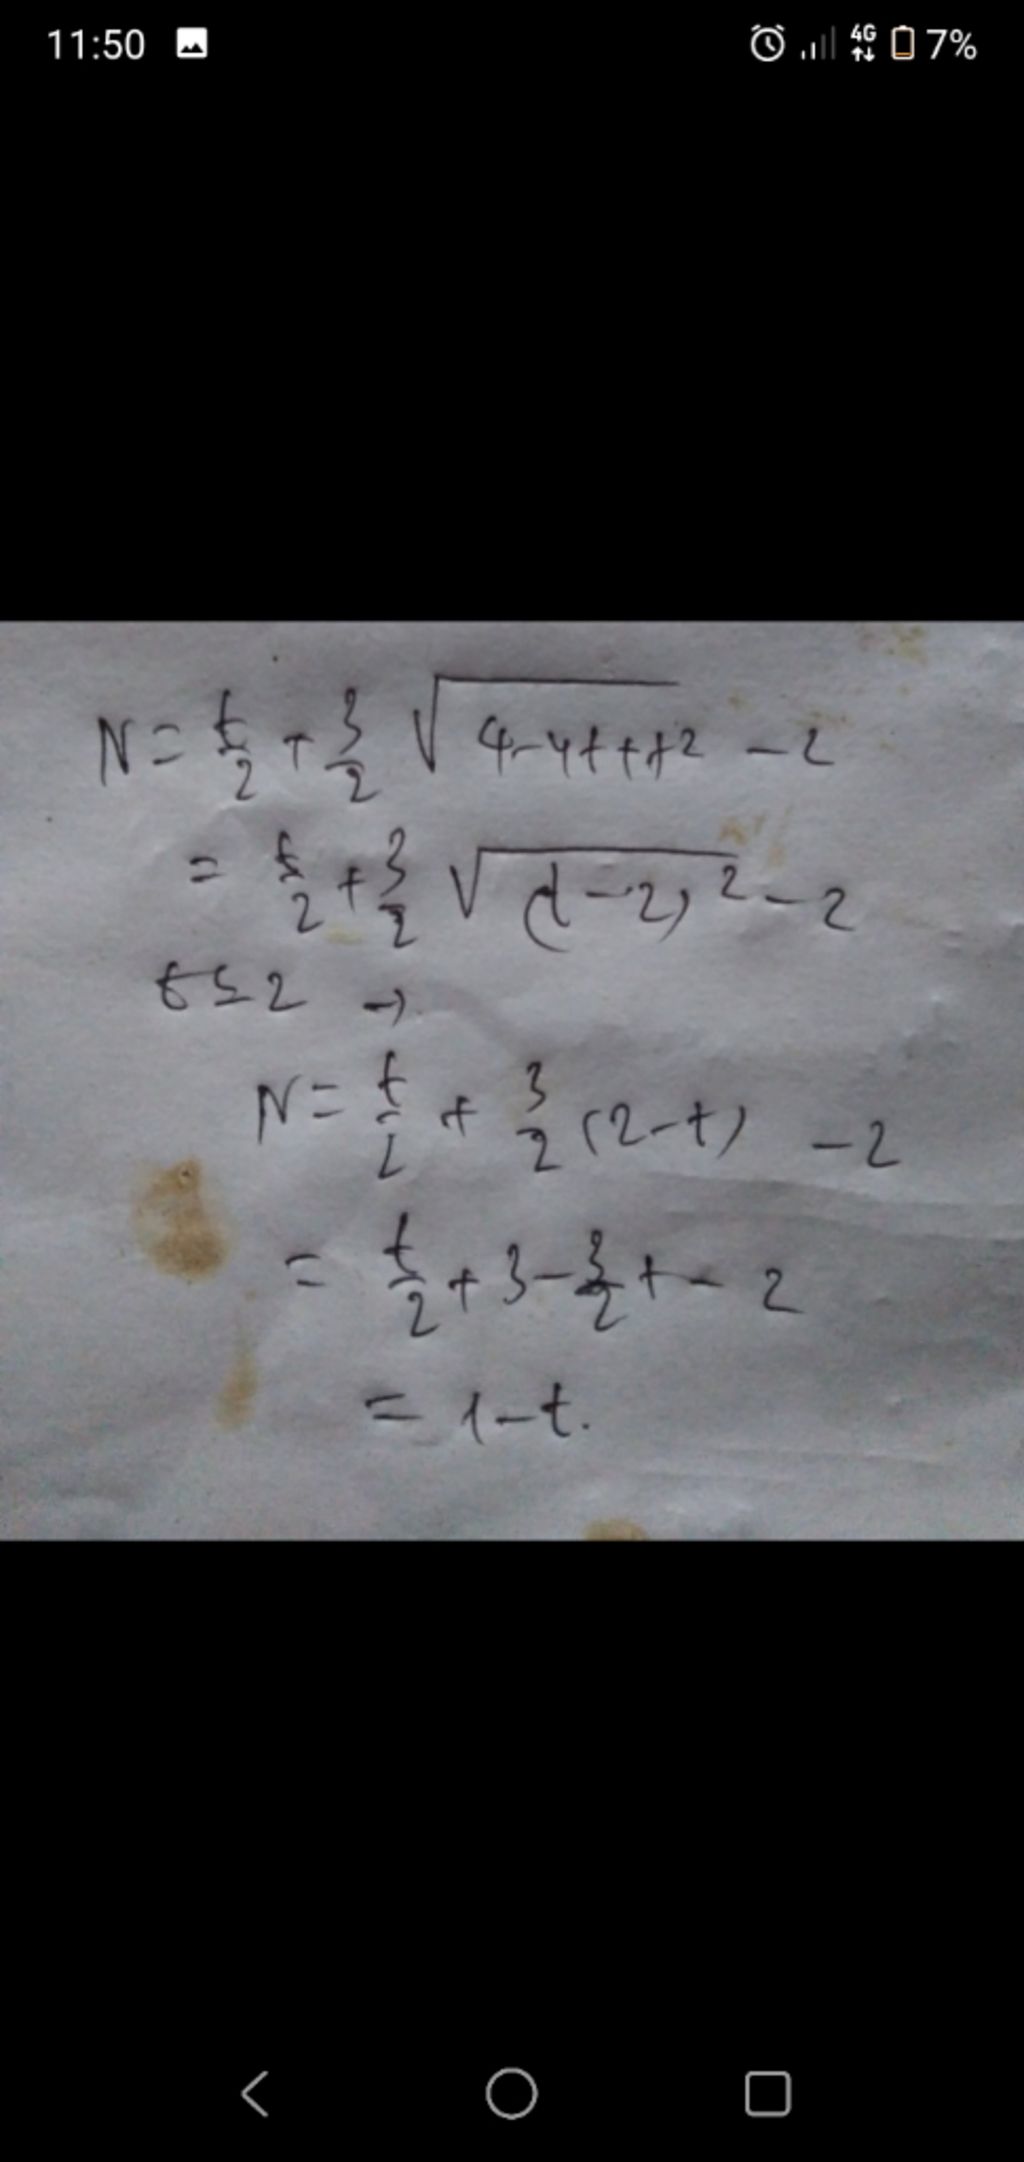 11:50 4G 7%
N = t/2 + 3/2 √(4-4t+t²) - 2
= t/2 + 3/2 √((t-2)²) - 2
t ≤ 2 →
N = t/2 + 3/2 (2-t) - 2
= t/2 + 3 - 3/2 t - 2
= 1-t.